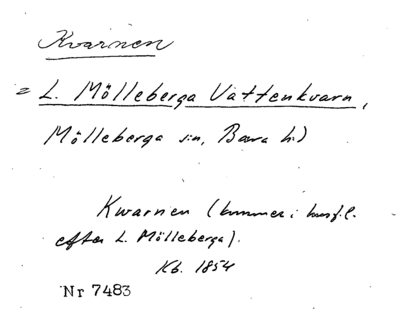 Kvarnen
= L. Mölleberga Vattenkvarn,
Mölleberga sn, Bara hd)
Kwarnen (kommer i husf.l.
efter L. Mölleberga).
Kb. 1854
Nr 7483